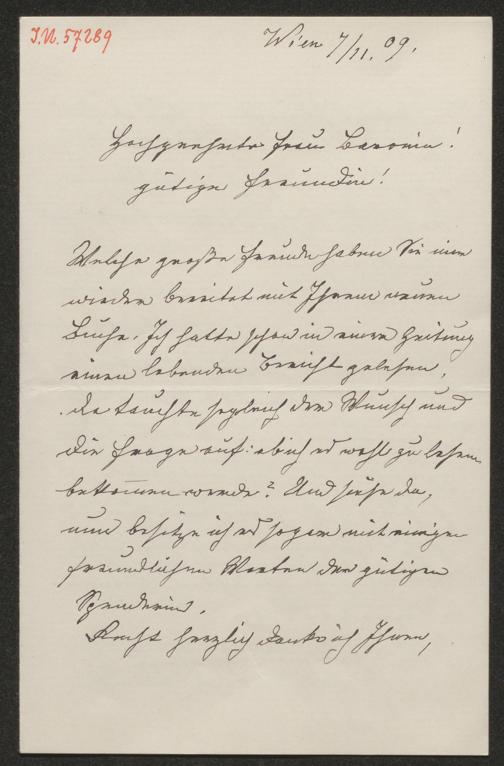 I.N. 57289
Wien 7/11. 09.
Hochgeehrte Frau Baronin!
gütige Freundin!
Welche große Freude haben Sie mir
wieder bereitet mit Ihrem neuen
Buche. Ich hatte schon in einer Zeitung
einen lobenden Bericht gelesen,
da tauchte sogleich der Wunsch und
die Frage auf: ob ich es wohl zu lesen
bekommen werde? Und siehe da,
nun besitze ich es sogar mit einigen
freundlichen Worten der gütigen
Spenderin.
Recht herzlich danke ich Ihnen,